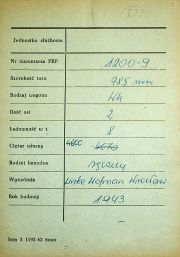 Jednostka służbowa
Nr inwentarza PKP 1200-9
Szerokość toru 785 mm
Rodzaj wagonu Wh
Ilość osi 2
Ładowność w t. 8
Ciężar własny 4600 4670
Rodzaj hamulca ręczny
Wytwórnia Linke Hofman Wrocław
Rok budowy 1943
bzm 3 1192-62 6000